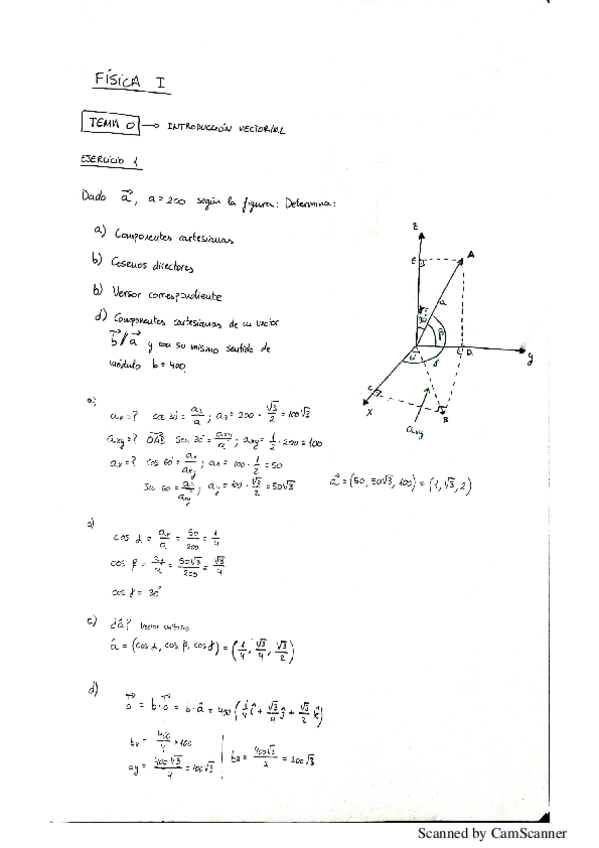 FÍSICA I
TEMA 0 → INTRODUCCIÓN VECTORIAL
EJERCICIO 1
Dado a⃗, a = 200 según la figura: Determina:
a) Componentes cartesianas
b) Cosenos directores
b) Versor correspondiente
d) Componentes cartesianas de un vector
b⃗ // a⃗ y con su mismo sentido de
módulo b = 400
z
E
A
a
30
β
γ
60
C
D
y
x
C
B
axy
a)
ax = ? cos 30 = az/a ; az = 200 · √3/2 = 100√3
axy = ? OAB sen 30 = axy/a ; axy = 1/2 · 200 = 100
ax = ? cos 60 = ax/axy ; ax = 100 · 1/2 = 50
sen 60 = ay/axy ; ay = 100 · √3/2 = 50√3
a⃗ = (50, 50√3, 100) = (1, √3, 2)
cos α = ax/a = 50/200 = 1/4
cos β = ay/a = 50√3/200 = √3/4
cos γ = 30°
c) ¿â? Vector unitario
â = (cos α, cos β, cos γ) = (1/4, √3/4, √3/2)
d)
= b · = b · â = 400 (1/4 î + √3/4 ĵ + √3/2 k̂)
bx = 400/4 = 100
by = 400√3/4 = 100√3
bz = 400√3/2 = 200√3
Scanned by CamScanner